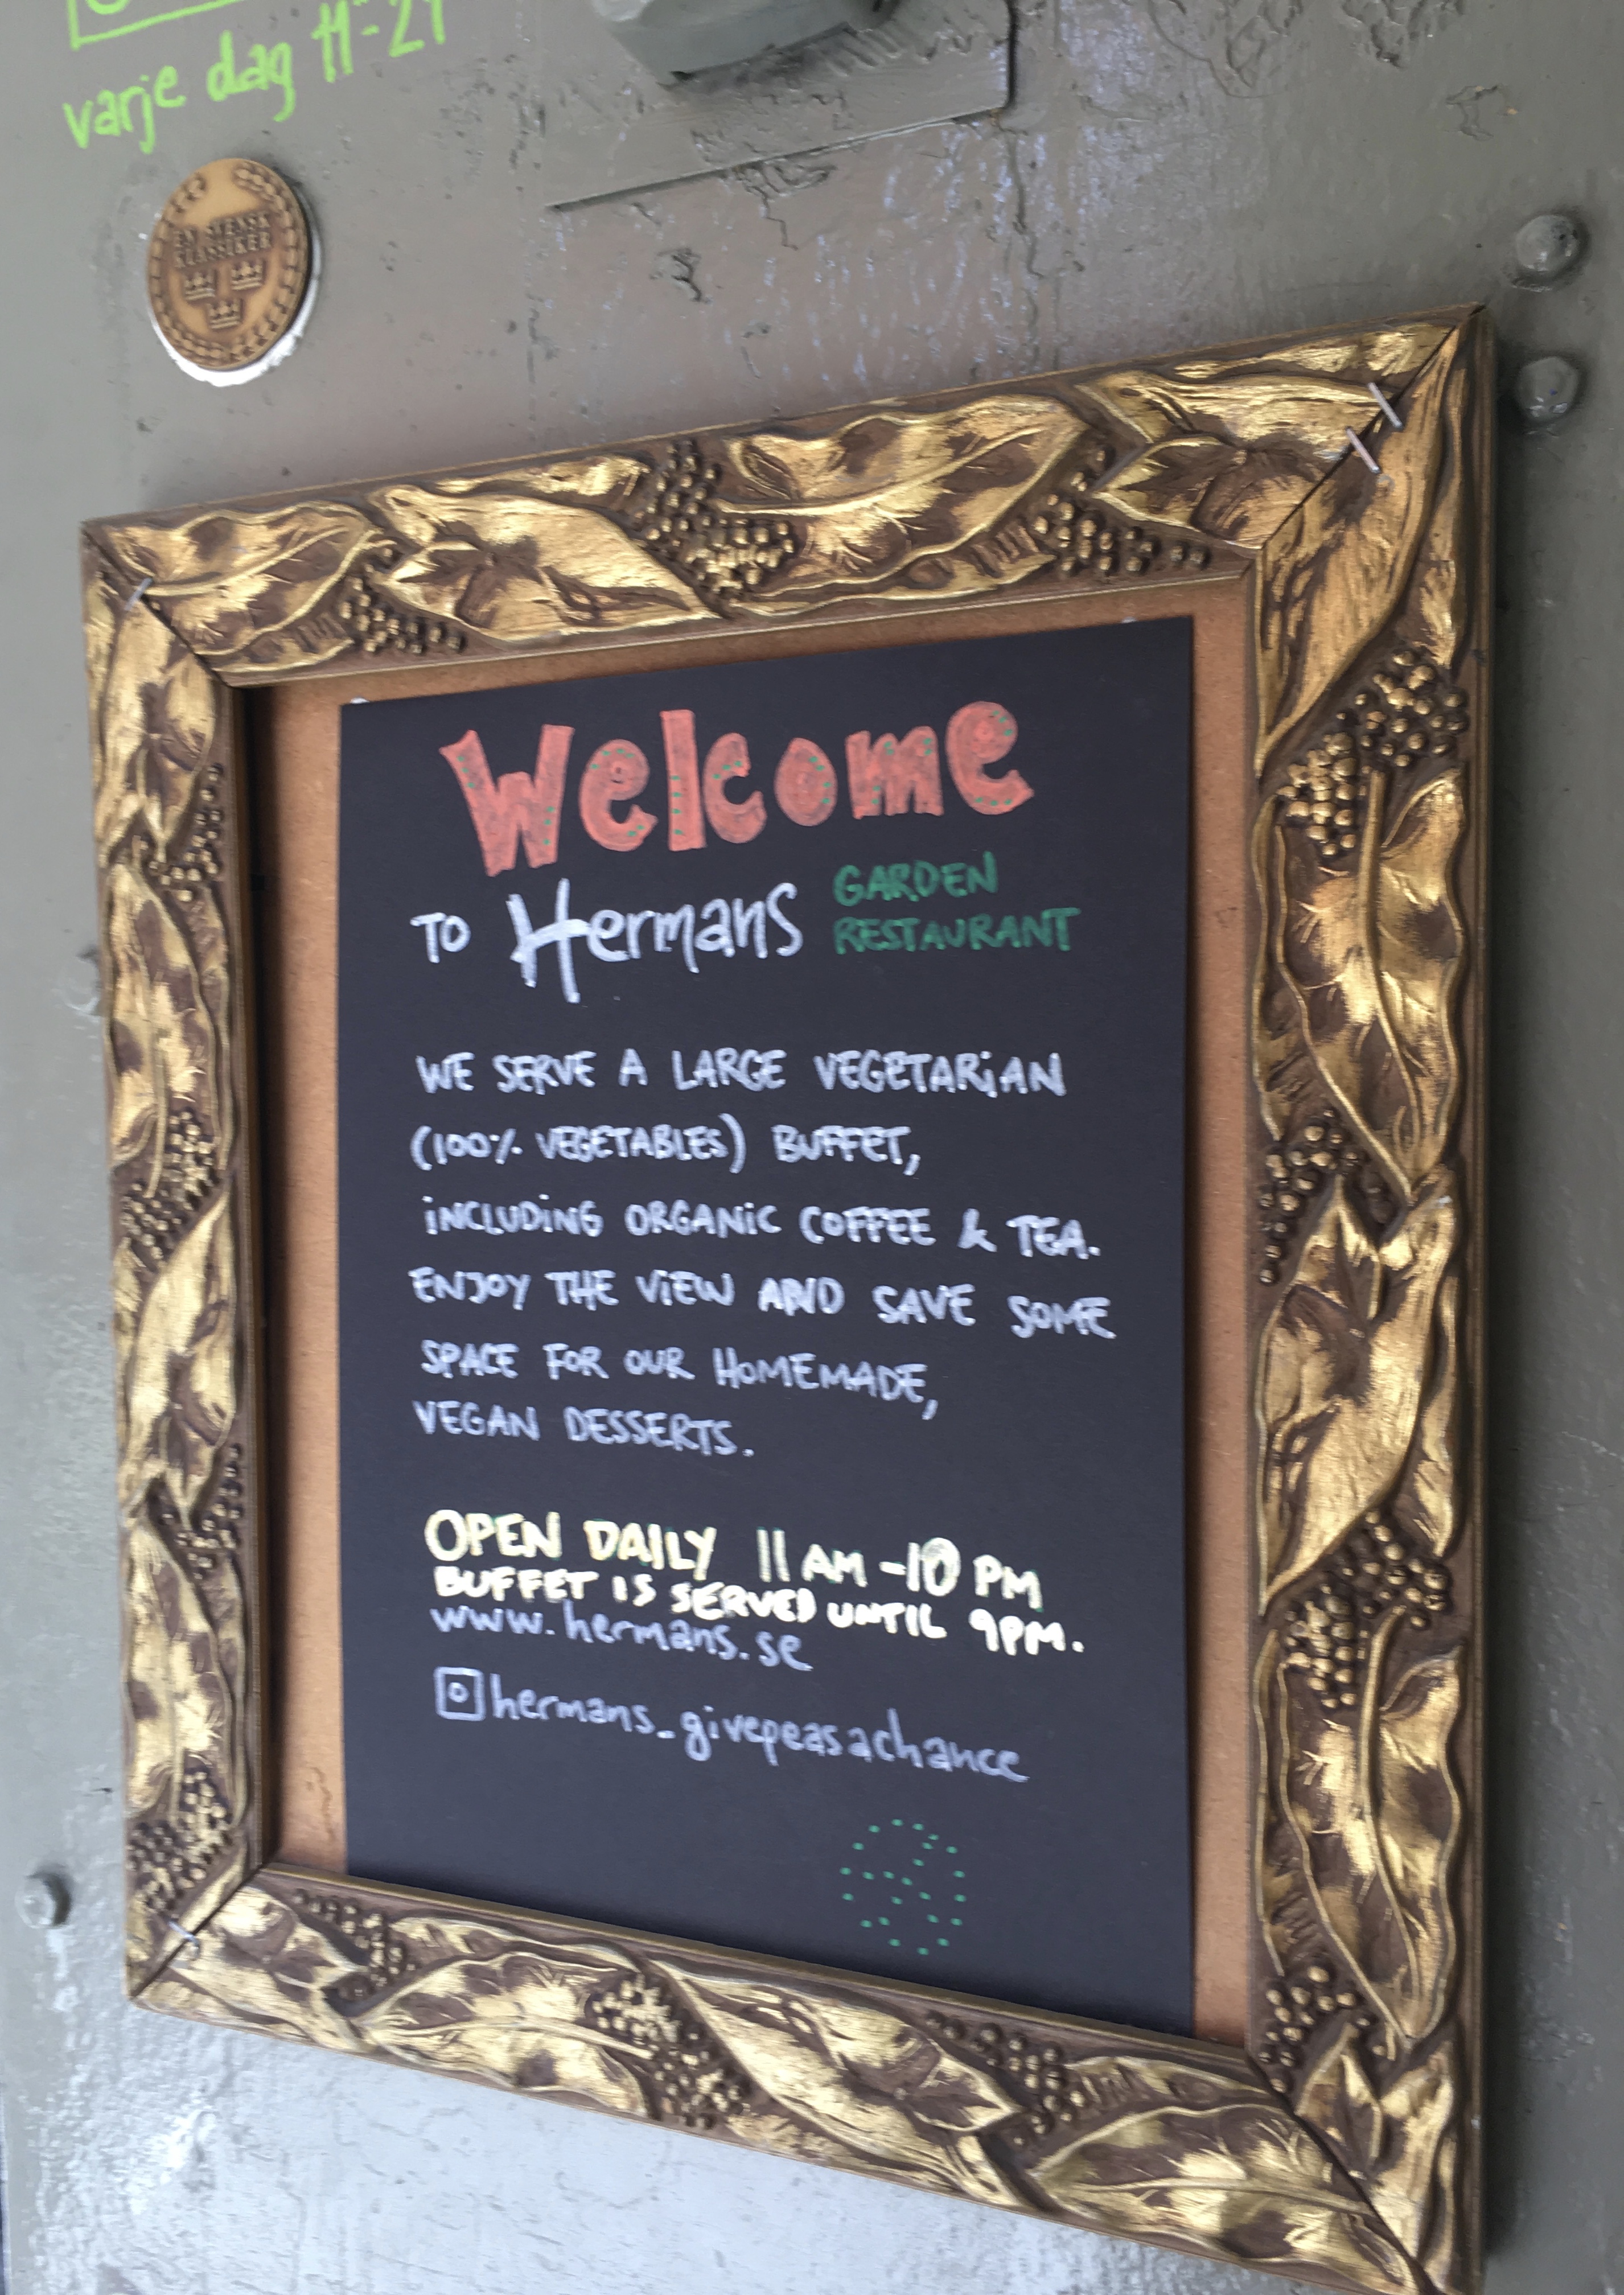 varje dag 11-21
EN SVENSK
KLASSIKER
Welcome
TO Hermans GARDEN
RESTAURANT
WE SERVE A LARGE VEGETARIAN
(100% VEGETABLES) BUFFET,
INCLUDING ORGANIC COFFEE & TEA.
ENJOY THE VIEW AND SAVE SOME
SPACE FOR OUR HOMEMADE,
VEGAN DESSERTS.
OPEN DAILY 11 AM -10 PM
BUFFET IS SERVED UNTIL 9PM.
www.hermans.se
hermans_givepeasachance